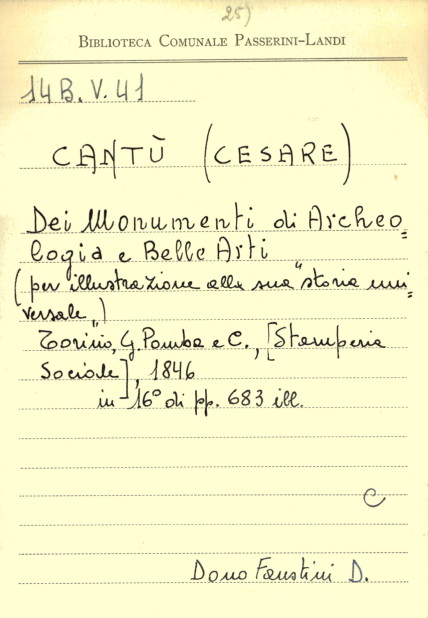 25)
BIBLIOTECA COMUNALE PASSERINI-LANDI
14B.V.41
CANTÙ (CESARE)
Dei Monumenti di Archeo=
logia e Belle Arti
(per illustrazione alla sua "storia uni=
versale")
Torino, G. Pomba e C., [Stamperia
Sociale], 1846
in-16° di pp. 683 ill.
C
Dono Faustini D.